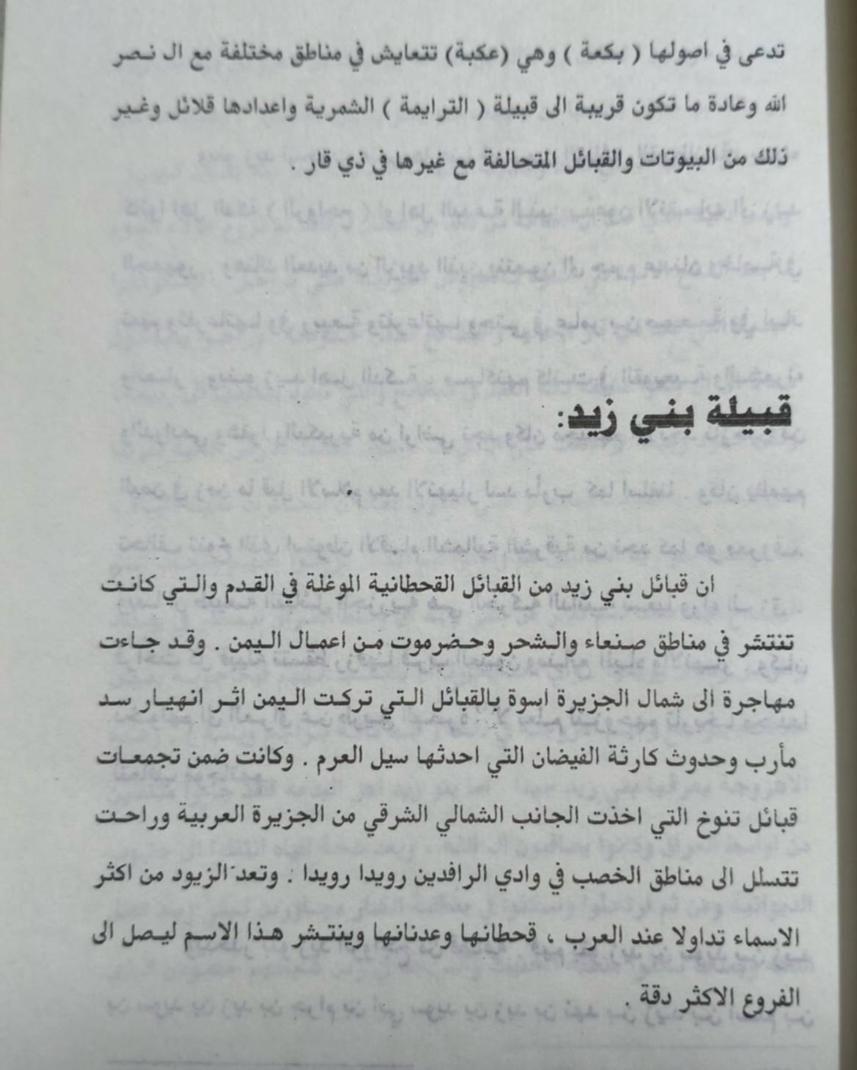 تدعى في اصولها ( بكعة ) وهي (عكبة) تتعايش في مناطق مختلفة مع ال نصر
الله وعادة ما تكون قريبة الى قبيلة ( الترايمة ) الشمرية واعدادها قلائل وغير
ذلك من البيوتات والقبائل المتحالفة مع غيرها في ذي قار .
قبيلة بني زيد:
ان قبائل بني زيد من القبائل القحطانية الموغلة في القدم والتي كانت
تنتشر في مناطق صنعاء والشحر وحضرموت من اعمال اليمن . وقد جاءت
مهاجرة الى شمال الجزيرة اسوة بالقبائل التي تركت اليمن اثر انهيار سد
مأرب وحدوث كارثة الفيضان التي احدثها سيل العرم . وكانت ضمن تجمعات
قبائل تنوخ التي اخذت الجانب الشمالي الشرقي من الجزيرة العربية وراحت
تتسلل الى مناطق الخصب في وادي الرافدين رويدا رويدا . وتعد الزيود من اكثر
الاسماء تداولا عند العرب ، قحطانها وعدنانها وينتشر هذا الاسم ليصل الى
الفروع الاكثر دقة .